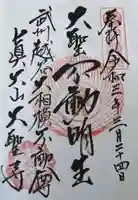 奉拝 令和三年二月二十四日
大聖不動明王
武州越谷大相模不動尊
真大山大聖寺